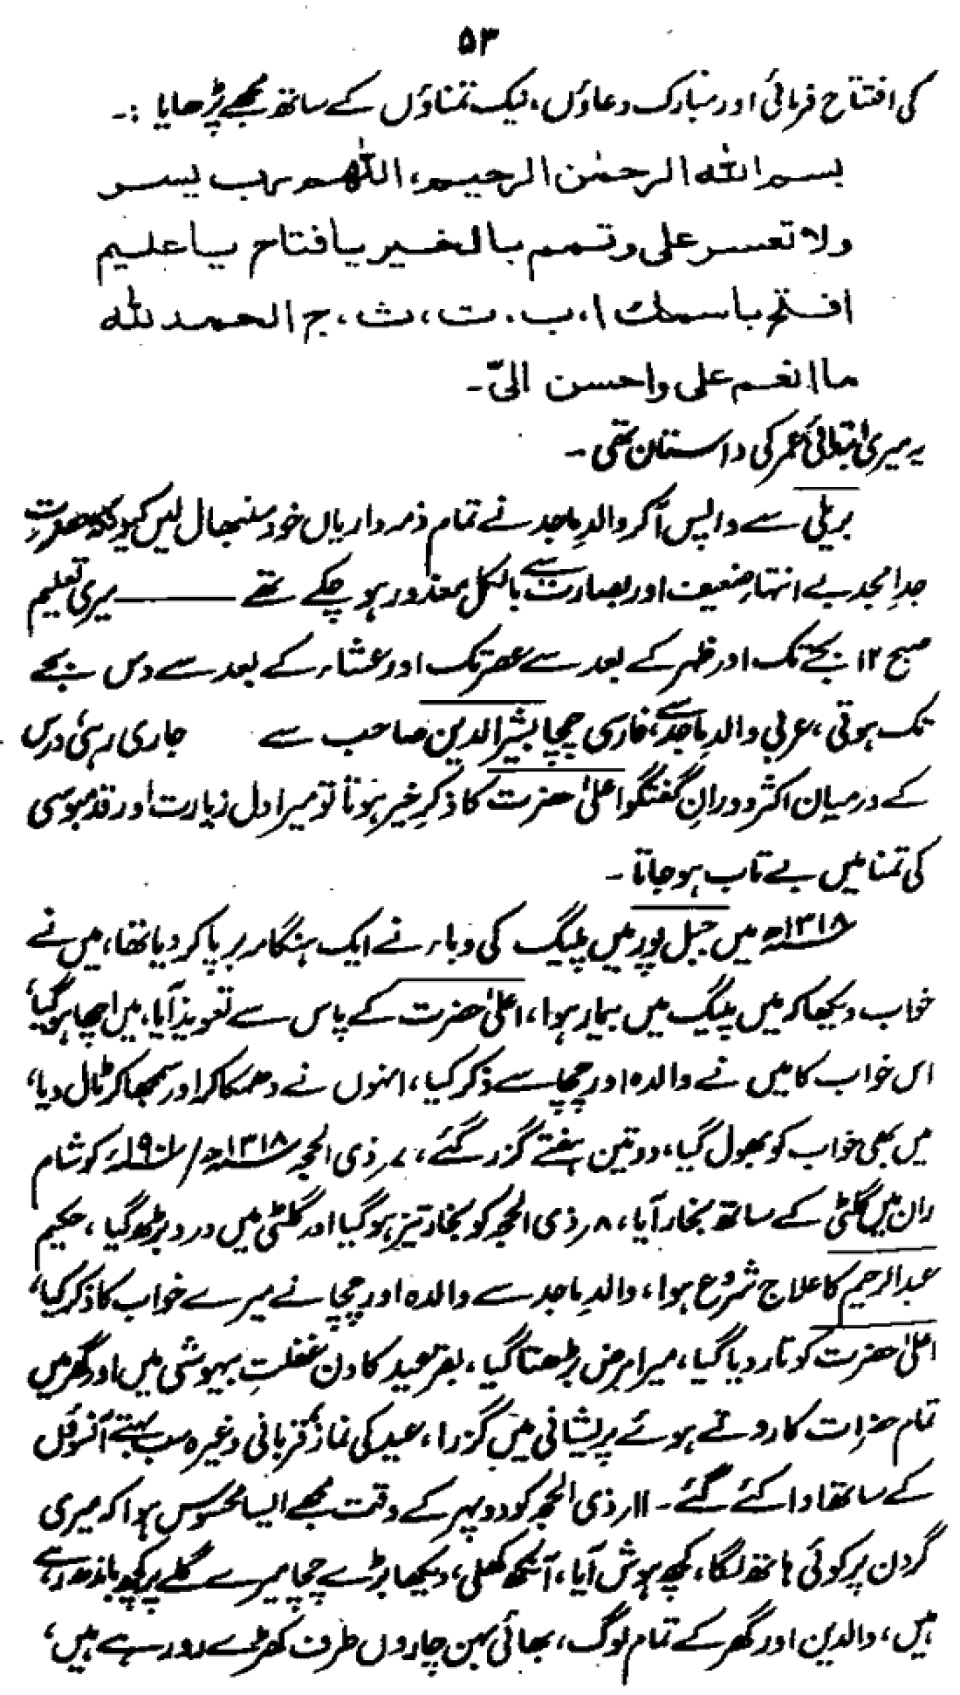 ۵۳
کی افتتاح فرمائی اور مبارک دعاؤں، نیک تمناؤں کے ساتھ مجھے پڑھایا :۔
بسم اللہ الرحمٰن الرحیم، اللّٰھم رب یسر
ولا تعسر علی وتمم بالخیر یا فتاح یا علیم
افتح باسمک ا، ب، ت، ث، ج الحمد للہ
ما انعم علی واحسن الیّ۔
یہ میری ابتدائی عمر کی داستان تھی۔
بریلی سے واپس آکر والدِ ماجد نے تمام ذمہ داریاں خود سنبھال لیں کیونکہ حضرت
جدِ امجد بے انتہا ضعیف اور بصارت سے بالکل معذور ہو چکے تھے ——— میری تعلیم
صبح ۱۲ بجے تک اور ظہر کے بعد سے عصر تک اور عشاء کے بعد سے دس بجے
تک ہوتی، عربی والدِ ماجد سے، فارسی چچا بشیر الدین صاحب سے جاری رہی، درس
کے درمیان اکثر دورانِ گفتگو اعلیٰ حضرت کا ذکرِ خیر ہوتا تو میرا دل زیارت اور قدمبوسی
کی تمنا میں بے تاب ہو جاتا۔
۱۳۱۸ھ میں جبل پور میں پلیگ کی وباء نے ایک ہنگامہ برپا کر دیا تھا، میں نے
خواب دیکھا کہ میں پلیگ میں بیمار ہوا، اعلیٰ حضرت کے پاس سے تعویذ آیا، میں اچھا ہو گیا،
اس خواب کا میں نے والدہ اور چچا سے ذکر کیا، انہوں نے دھمکا کر اور سمجھا کر ٹال دیا،
میں بھی خواب کو بھول گیا، دو تین ہفتے گزر گئے، ۷ر ذی الحجہ ۱۳۱۸ھ/۱۹۰۱ء کو شام
ران میں گلٹی کے ساتھ بخار آیا، ۸ر ذی الحجہ کو بخار تیز ہو گیا اور گلٹی میں درد بڑھ گیا، حکیم
عبدالرحیم کا علاج شروع ہوا، والدِ ماجد سے والدہ اور چچا نے میرے خواب کا ذکر کیا،
اعلیٰ حضرت کو تار دیا گیا، میرا مرض بڑھتا گیا، بقر عید کا دن غفلتِ بیہوشی میں اور گھر میں
تمام حضرات کا روتے ہوئے پریشانی میں گزرا، عید کی نماز، قربانی وغیرہ سب بہتے آنسوؤں
کے ساتھ ادا کئے گئے۔ ۱۱ر ذی الحجہ کو دوپہر کے وقت مجھے ایسا محسوس ہوا کہ میری
گردن پر کوئی ہاتھ لگا، کچھ ہوش آیا، آنکھ کھلی، دیکھا بڑے چچا میرے گلے پر کچھ باندھ رہے
ہیں، والدین اور گھر کے تمام لوگ، بھائی بہن چاروں طرف کھڑے رو رہے ہیں،